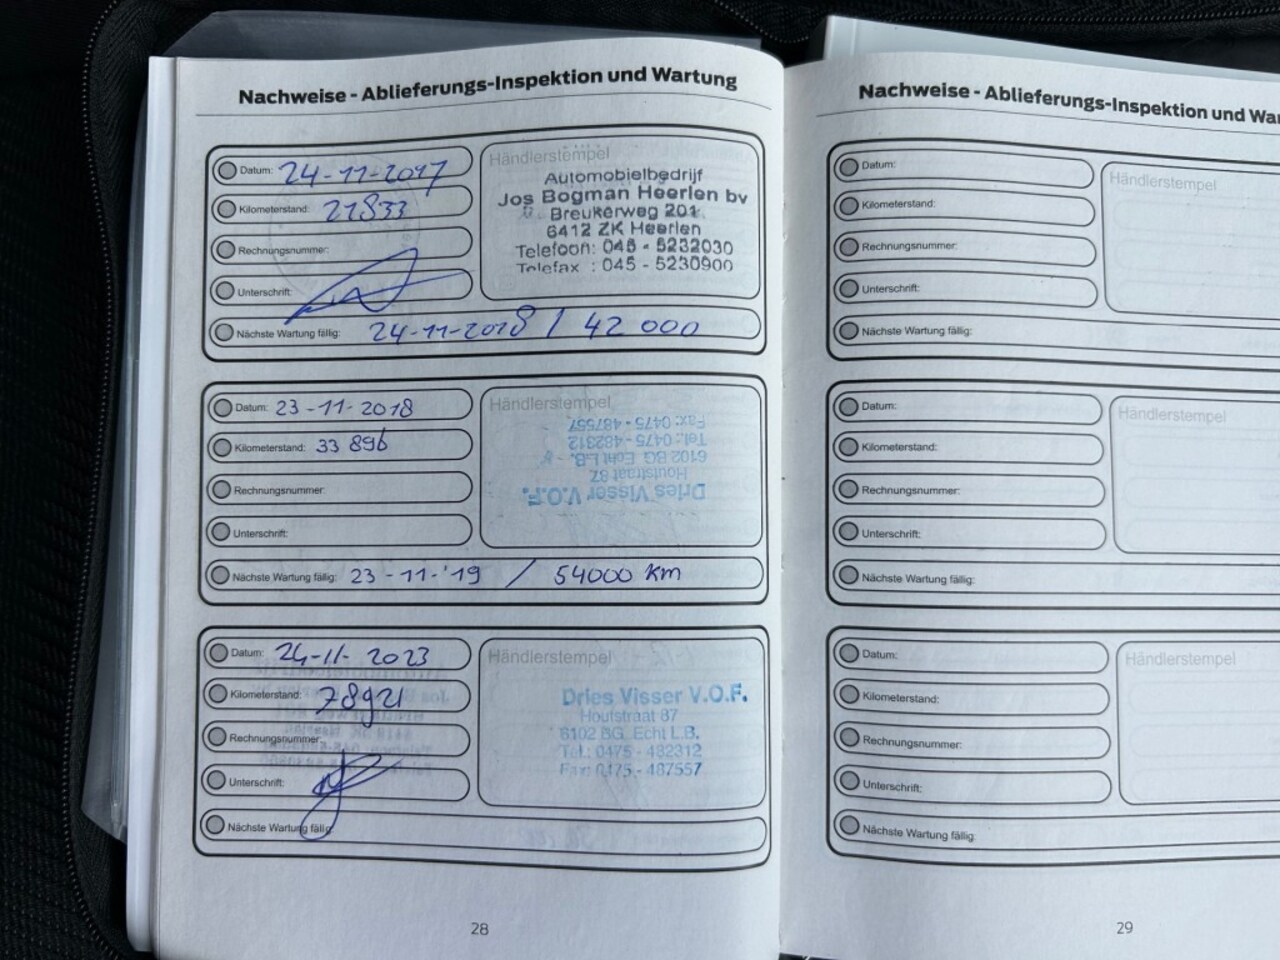 Nachweise - Ablieferungs-Inspektion und Wartung
Datum: 24-11-2017
Kilometerstand: 21833
Rechnungsnummer:
Unterschrift:
Händlerstempel
Automobielbedrijf
Jos Bogman Heerlen bv
Breukerweg 201
6412 ZK Heerlen
Telefoon: 045 - 5232030
Telefax : 045 - 5230900
Nächste Wartung fällig: 24-11-2018 / 42 000
Datum: 23-11-2018
Kilometerstand: 33 896
Rechnungsnummer:
Unterschrift:
Händlerstempel
Dries Visser V.O.F.
Houtstraat 87
6102 BG Echt L.B.
Tel.: 0475 - 482312
Fax: 0475 - 487557
Nächste Wartung fällig: 23-11-'19 / 54000 km
Datum: 24-11-2023
Kilometerstand: 78921
Rechnungsnummer:
Unterschrift:
Händlerstempel
Dries Visser V.O.F.
Houtstraat 87
6102 BG Echt L.B.
Tel.: 0475 - 482312
Fax: 0475 - 487557
Nächste Wartung fällig:
28
Nachweise - Ablieferungs-Inspektion und War
Datum:
Kilometerstand:
Rechnungsnummer:
Unterschrift:
Händlerstempel
Nächste Wartung fällig:
Datum:
Kilometerstand:
Rechnungsnummer:
Unterschrift:
Händlerstempel
Nächste Wartung fällig:
Datum:
Kilometerstand:
Rechnungsnummer:
Unterschrift:
Händlerstempel
Nächste Wartung fällig:
29